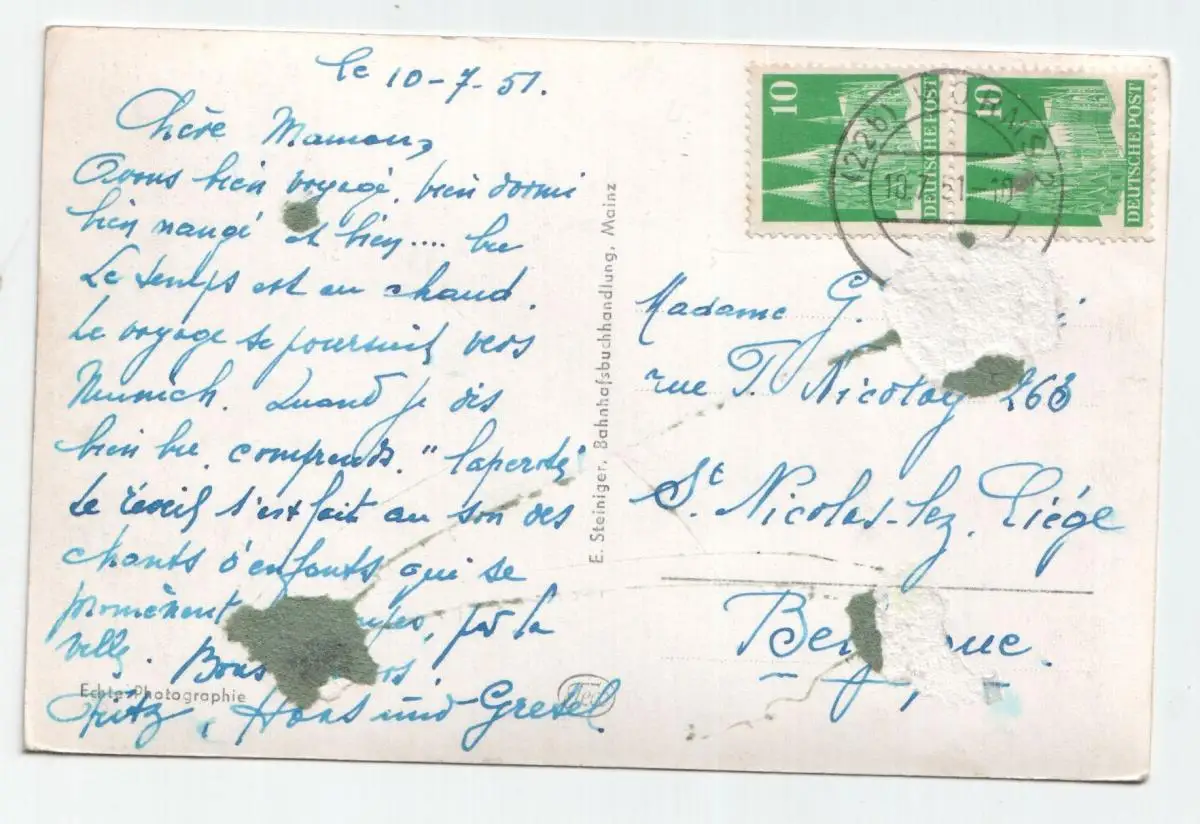 le 10-7-51.
Chère Maman,
Avons bien voyagé, bien dormi
bien mangé et bien.... bu
Le temps est au chaud.
Le voyage se poursuit vers
Munich. Quand je dis
bien bu, comprends "
Le réveil s'est fait au son des
chants d'enfants qui se
promènent par la
ville. Bons
Fritz, Hans und Gretel
Echte Photographie
E. Steiniger, Bahnhofsbuchhandlung, Mainz
10 DEUTSCHE POST
10 DEUTSCHE POST
(22b) WORMS
10.7.51
Madame G.
rue T. Nicolay 263
St. Nicolas-lez-Liége